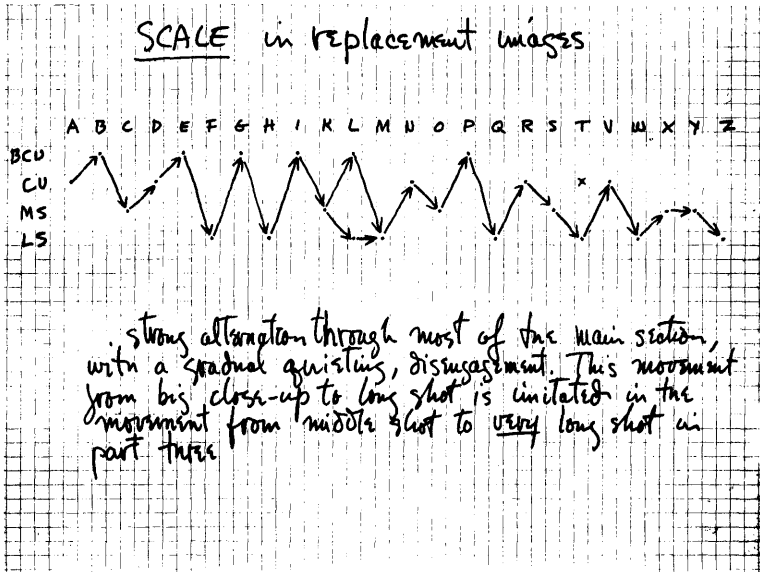 SCALE in replacement images
A B C D E F G H I K L M N O P Q R S T V W X Y Z
BCU
CU x
MS
LS
. strong alternation through most of the main section,
with a gradual quieting, disengagement. This movement
from big close-up to long shot is imitated in the
movement from middle shot to very long shot in
part three